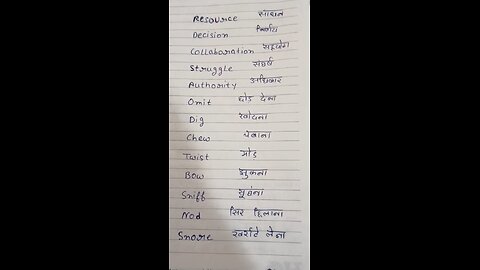 Resource साधन
Decision निर्णय
Collaboration सहयोग
Struggle संघर्ष
Authority अधिकार
Omit छोड देना
Dig खोदना
Chew चबाना
Twist मोड
Bow झुकना
Sniff सूघंना
Nod सिर हिलाना
Snore खर्राटे लेना